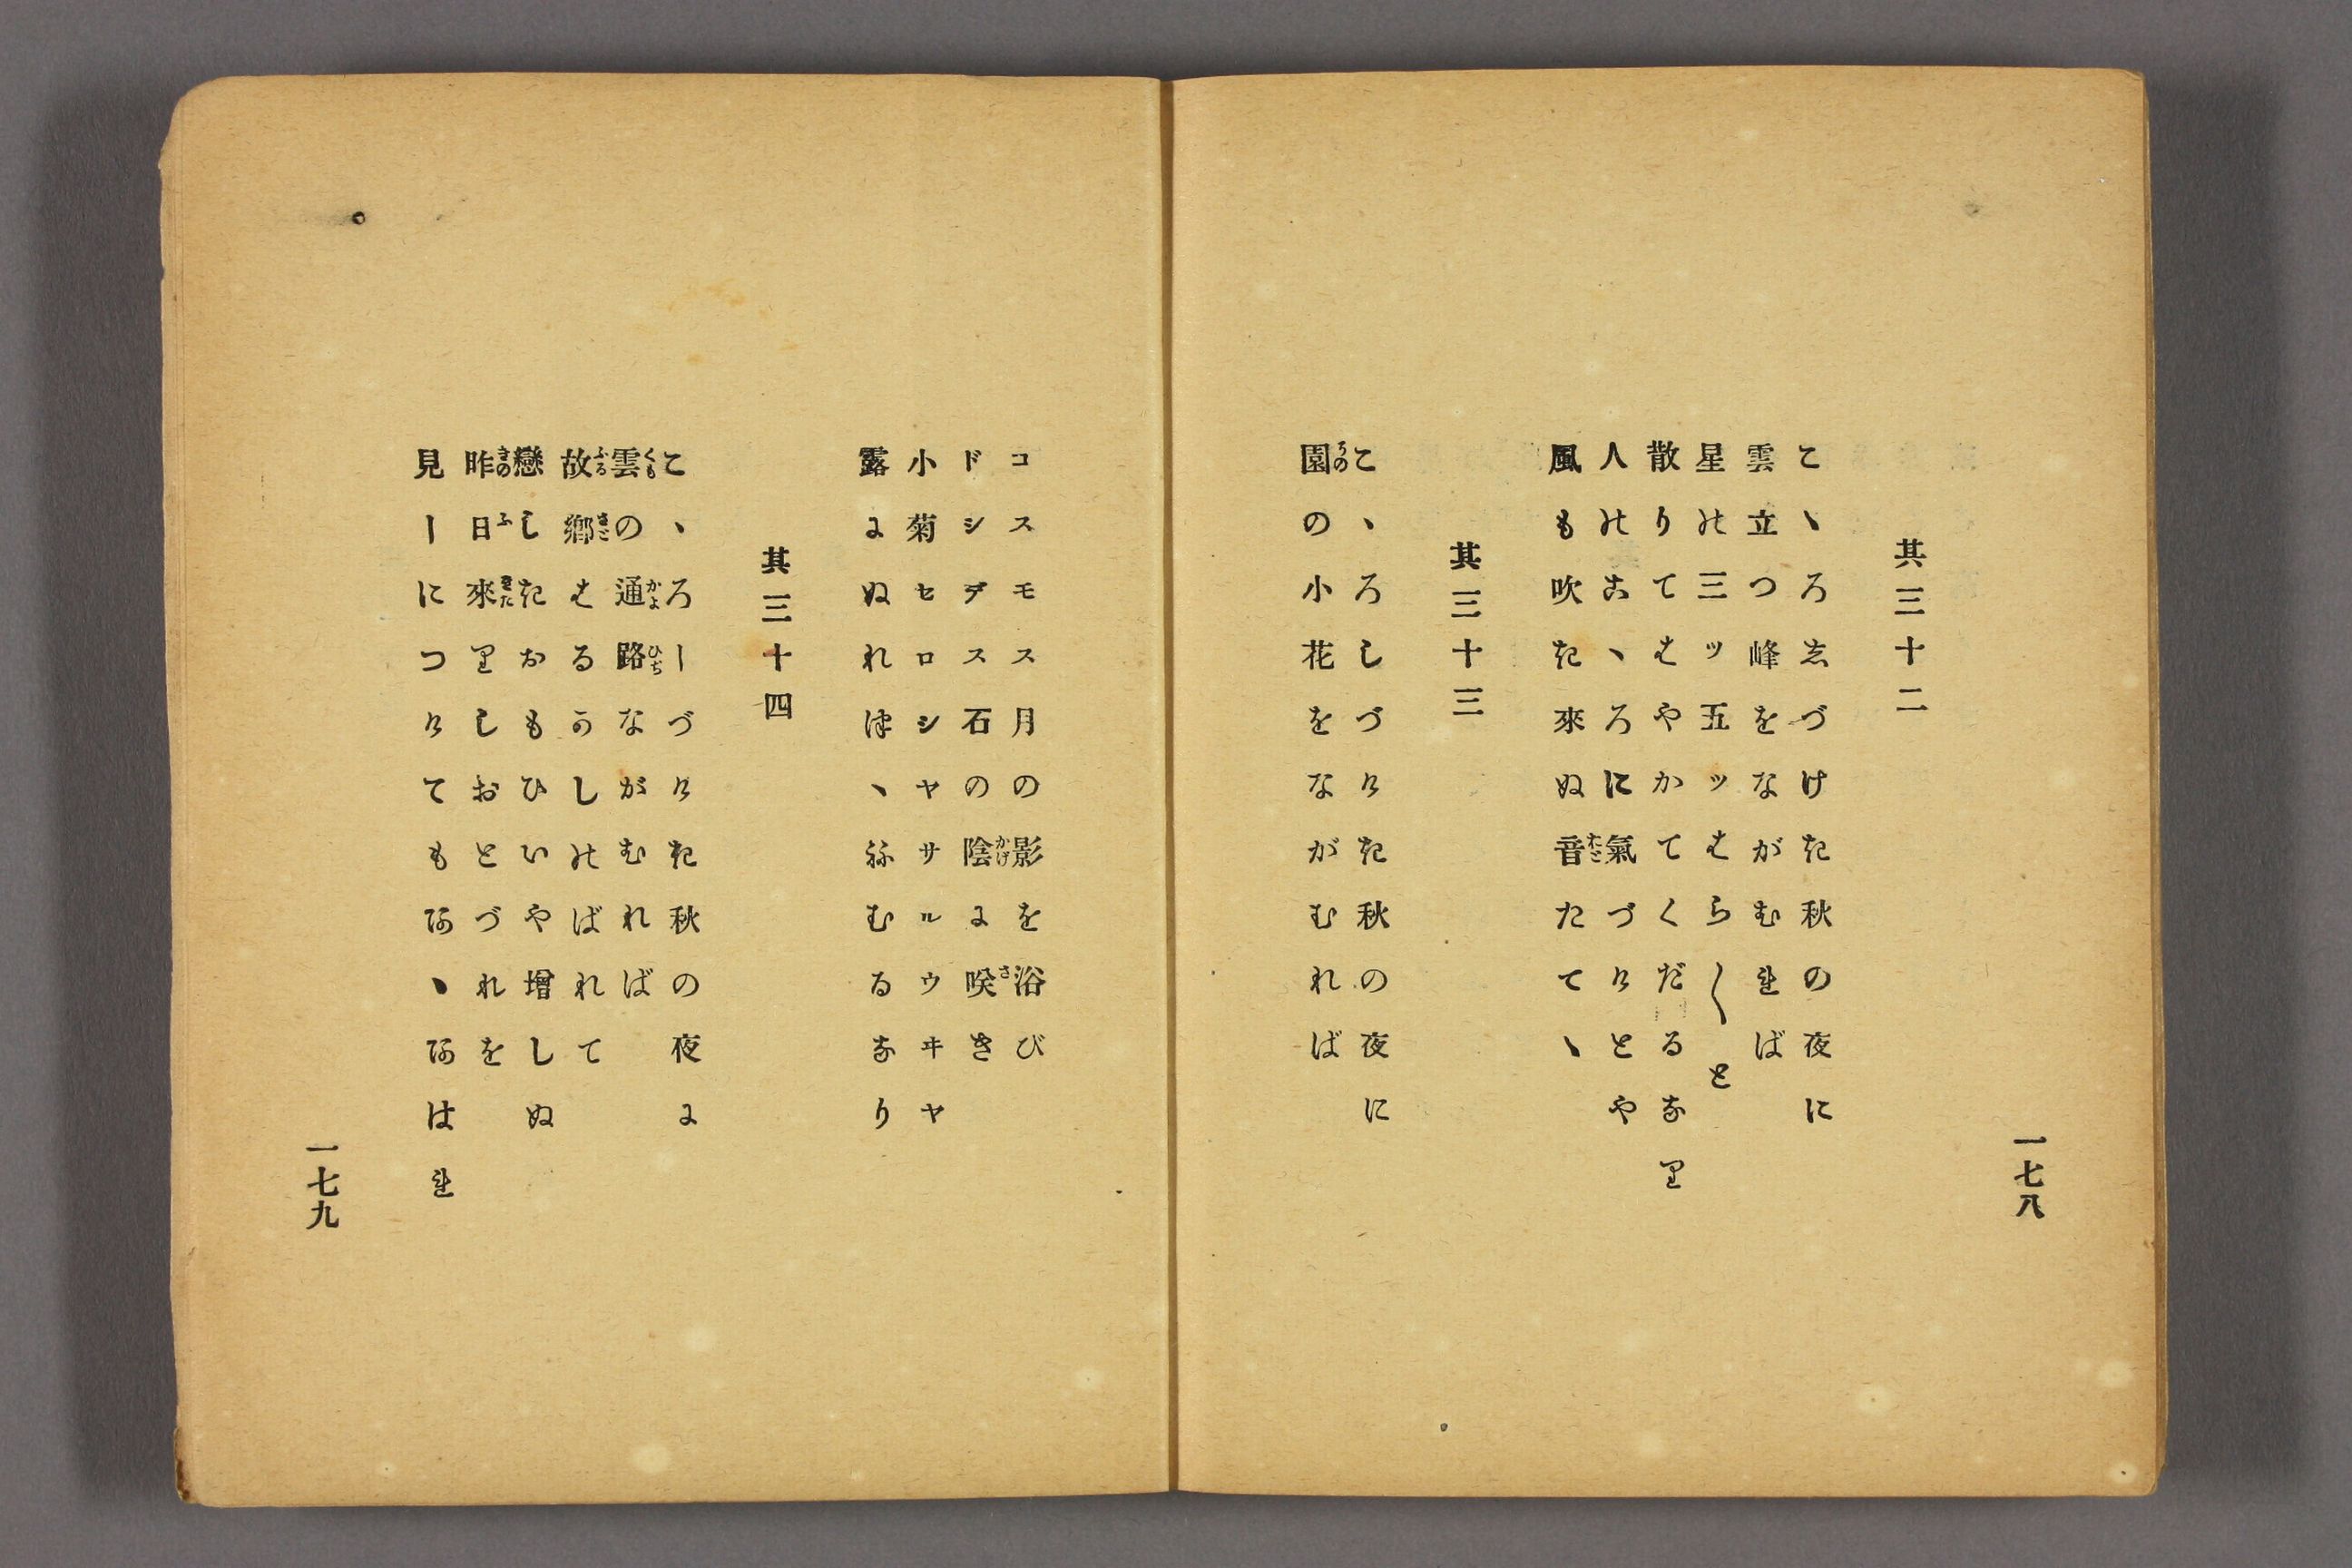 一七八
其三十二
こゝろしづけき秋の夜に
雲立つ峰をながむれば
星の三ッ五ッはら〳〵と
散りてはやかてくだるなり
人のこゝろに氣づけとや
風も吹き來ぬ音たてゝ
其三十三
こゝろしづけき秋の夜に
園の小花をながむれば
コスモス月の影を浴び
ドシデス石の陰に咲き
小菊セロシヤサルウヰヤ
露にぬれつゝねむるなり
其三十四
こゝろしづけき秋の夜に
雲の通路ながむれば
故鄕はるかしのばれて
戀しきおもひいや增しぬ
昨日來りしおとづれを
見しにつけてもあゝあはれ
一七九